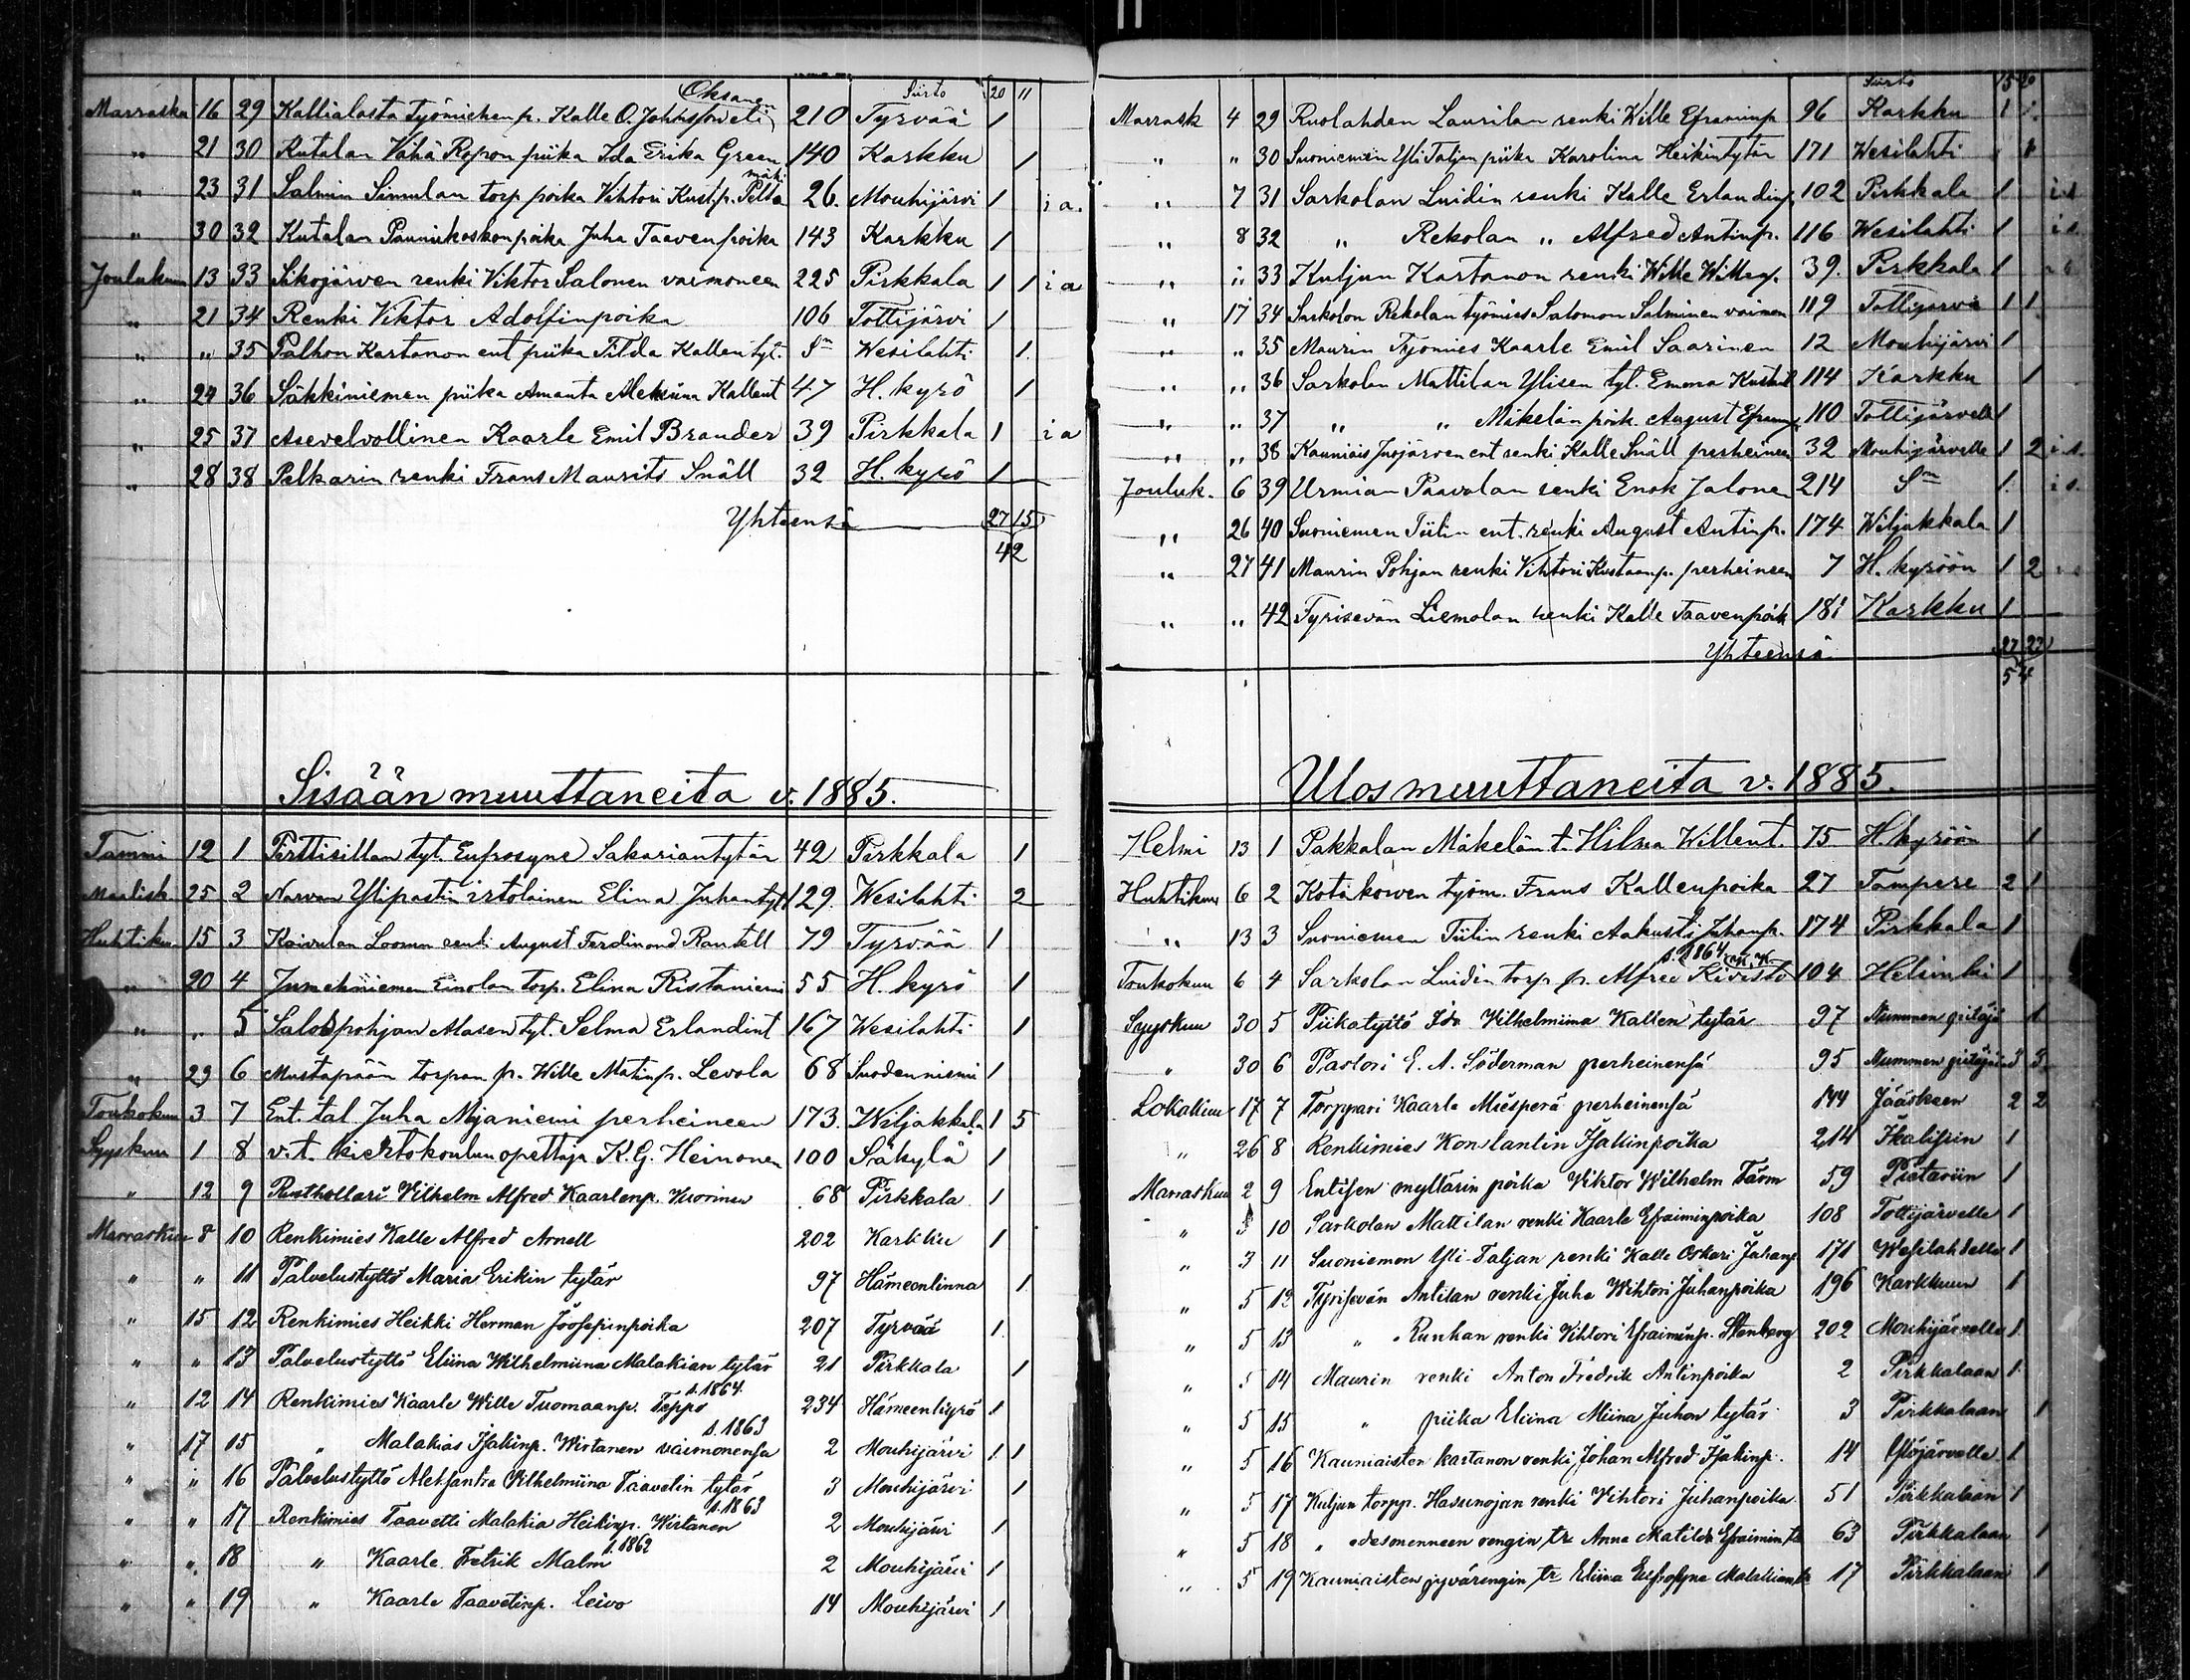 Oksanen Siirto 20 11
Marrasku 16 29 Kallialasta Työmiehen p. Kalle O. Johhsson eli 210 Tyrvää 1
" 21 30 Kutalan Vähä Ropon piika Ida Erika Green 140 Karkku 1
mäki
" 23 31 Salmin Simulan torp poika Vihtori Kust.p. Pelto 26. Mouhijärvi 1 i a.
" 30 32 Kutalan Paunukoskon poika Juha Taavenpoika 143 Karkku 1
Joulukuun 13 33 Sikojärven renki Viktor Salonen vaimoneen 225 Pirkkala 1 1 i a
" 21 34 Renki Viktor Adolfinpoika 106 Tottijärvi 1
" " 35 Palhon Kartanon ent piika Tilda Kallentyt. Sm Wesilahti 1.
" 24 36 Säkkiniemen piika Amanta Aleksiina Kallent 47 H. kyrö 1
" 25 37 Asevelvollinen Kaarle Emil Brander 39 Pirkkala 1 i a
" 28 38 Pelkarin renki Frans Maurits Snäll 32 H. kyrö 1
Yhteensä 27 15
42
Sisään muuttaneita v. 1885.
Tammi 12 1 Perttisillan tyt. Eufrosyne Sakariantytär 42 Pirkkala 1
Maalisk 25 2 Narvan Ylipastin irtolainen Elina Juhantyt 129. Wesilahti 2
Huhtiku 15 3 Koivulan Loomun renki August Ferdinand Rantell 79 Tyrvää 1
" 20 4 Einolan torp. Elina Ristaniemi 55 H. kyrö 1
" " 5 Salospohjan Alasen tyt. Selma Erlandint 167 Wesilahti 1
" 29 6 Mustapään torpan p. Wille Matinp. Levola 68 Suodenniemi 1
Toukokuu 3 7 Ent. tal Juha Mijaniemi perheineen 173. Wiljakkala 1 5
Syyskuu 1 8 v.t. kiertokoulun opettaja K.G. Heinonen 100 Säkylä 1
" 12 9 Rusthollari Vilhelm Alfred Kaarlenp. Wuorinen 68 Pirkkala 1
Marraskuu 8 10 Renkimies Kalle Alfred Arnell 202 Karkku 1
" " 11 Palvelustyttö Maria Erikin tytär 97 Hämeenlinna 1.
" 15 12 Renkimies Heikki Herman Joosepinpoika 207 Tyrvää 1.
" " 13 Palvelustyttö Eliina Wilhelmiina Malakian tytär 21 Pirkkala 1
s. 1864
" 12 14 Renkimies Kaarle Wille Tuomaanp. Teppo 234 Hämeenkyrö 1
s. 1863
" 17 15 " Malakias Isakinp. Wirtanen vaimonensa 2 Mouhijärvi 1 1
" " 16 Palvelustyttö Aleksandra Vilhelmiina Taavetin tytär 3 Mouhijärvi 1
s. 1863
" " 17 Renkimies Taavetti Malakia Heikinp. Wirtanen 2 Mouhijärvi 1
s. 1862
" " 18 " Kaarle Fretrik Malm 2 Mouhijärvi 1
" " 19 " Kaarle Taavetinp. Leivo 14 Mouhijärvi 1
Siirto 15 20
Marrask 4 29 Ruolahden Laurilan renki Wille Efraimp 96 Karkku 1 i.
" " 30 Suoniemen Yli Taljan piika Karolina Heikintytär 171 Wesilahti 1
" 7 31 Sarkolan Luidin renki Kalle Erlandinp 102 Pirkkala 1 i s
" 8 32 " Rekolan " Alfred Antinp. 116 Wesilahti 1 i s.
" " 33 Kuljun Kartanon renki Wille Willep. 39. Pirkkala 1
" 17 34 Sarkolan Rekolan työmies Salomon Salminen vaimon 119 Tottijärvi 1 1
" " 35 Maurin Työmies Kaarle Emil Saarinen 12 Mouhijärvi 1
" " 36 Sarkolan Mattilan Ylisen tyt. Emma Kustat 114 Karkku 1
" " 37 " " Mäkelän poik. August Efraimp 110 Tottijärvelle 1
" " 38 Kauniais Juojärven ent renki Kalle Snäll perheineen 32 Mouhijärvelle 1 2 i s.
Jouluk. 6 39 Urmian Paavolan renki Enok Jalonen 214 Sm 1. i s.
" 26 40 Suoniemen Tiilin ent. renki August Antinp. 174 Wiljakkala 1
" 27 41 Maurin Pohjan renki Vihtori Kustaanp. perheineen 7 H. kyröön 1 2
" " 42 Tyrisevän Liemolan renki Kalle Taavenpoik 181 Karkku 1
Yhteensä 27 27
54
Ulosmuuttaneita v. 1885.
Helmi 13 1 Pakkalan Mäkelän t. Hilma Willent. 75 H. kyröön 1
Huhtikuu 6 2 Kotakorven työm. Frans Kallenpoika 27 Tampere 2 1
" 13 3 Suoniemen Tiilin renki Aakusti Juhanp. 174 Pirkkala 1
s. 1864
Toukokuu 6 4 Sarkolan Luidin torp p. Alfred Kivistö 104 Helsinki 1
Syyskuu 30 5 Piikatyttö Ida Vilhelmiina Kallen tytär 97 Nummen pitäjä 1
" 30 6 Pastori E. A. Söderman perheinensä 95 Nummen pitäjään 3 3
Lokakuu 17 7 Torppari Kaarle Miesperä perheinensä 144 Jääskeen 2 2
" 26 8 Renkimies Konstantin Isakinpoika 214 Ikalisiin 1
Marraskuu 2 9 Entisen myllärin poika Viktor Wilhelm Färm 59 Pietariin 1
" 3 10 Sarkolan Mattilan renki Kaarle Efraiminpoika 108 Tottijärvelle 1
" 3 11 Suoniemen Yli-Taljan renki Kalle Oskari Juhanp 171 Wesilahdelle 1
" 5 12 Tyrisevän Antilan renki Juha Wihtori Juhanpoika 196 Karkkuun 1
" 5 13 " Runhan renki Vihtori Efraiminp. Stenberg 202 Mouhijärvelle 1
" 5 14 Maurin renki Anton Fredrik Antinpoika 2 Pirkkalaan 1
" 5 15 " piika Eliina Miina Juhon tytär 3 Pirkkalaan 1
" 5 16 Kauniaisten kartanon renki Johan Alfred Isakinp. 14 Ylöjärvelle 1
" 5 17 Kuljun torpp. Hasunojan renki Vihtori Juhanpoika 51 Pirkkalaan 1
" 5 18 " edesmenneen rengin tr Anna Matilda Efraimin tr 63 Pirkkalaan 1
" 5 19 Kauniaisten pyvärengin tr Eliina Eufrosyne Malakian tr 17 Pirkkalaan 1